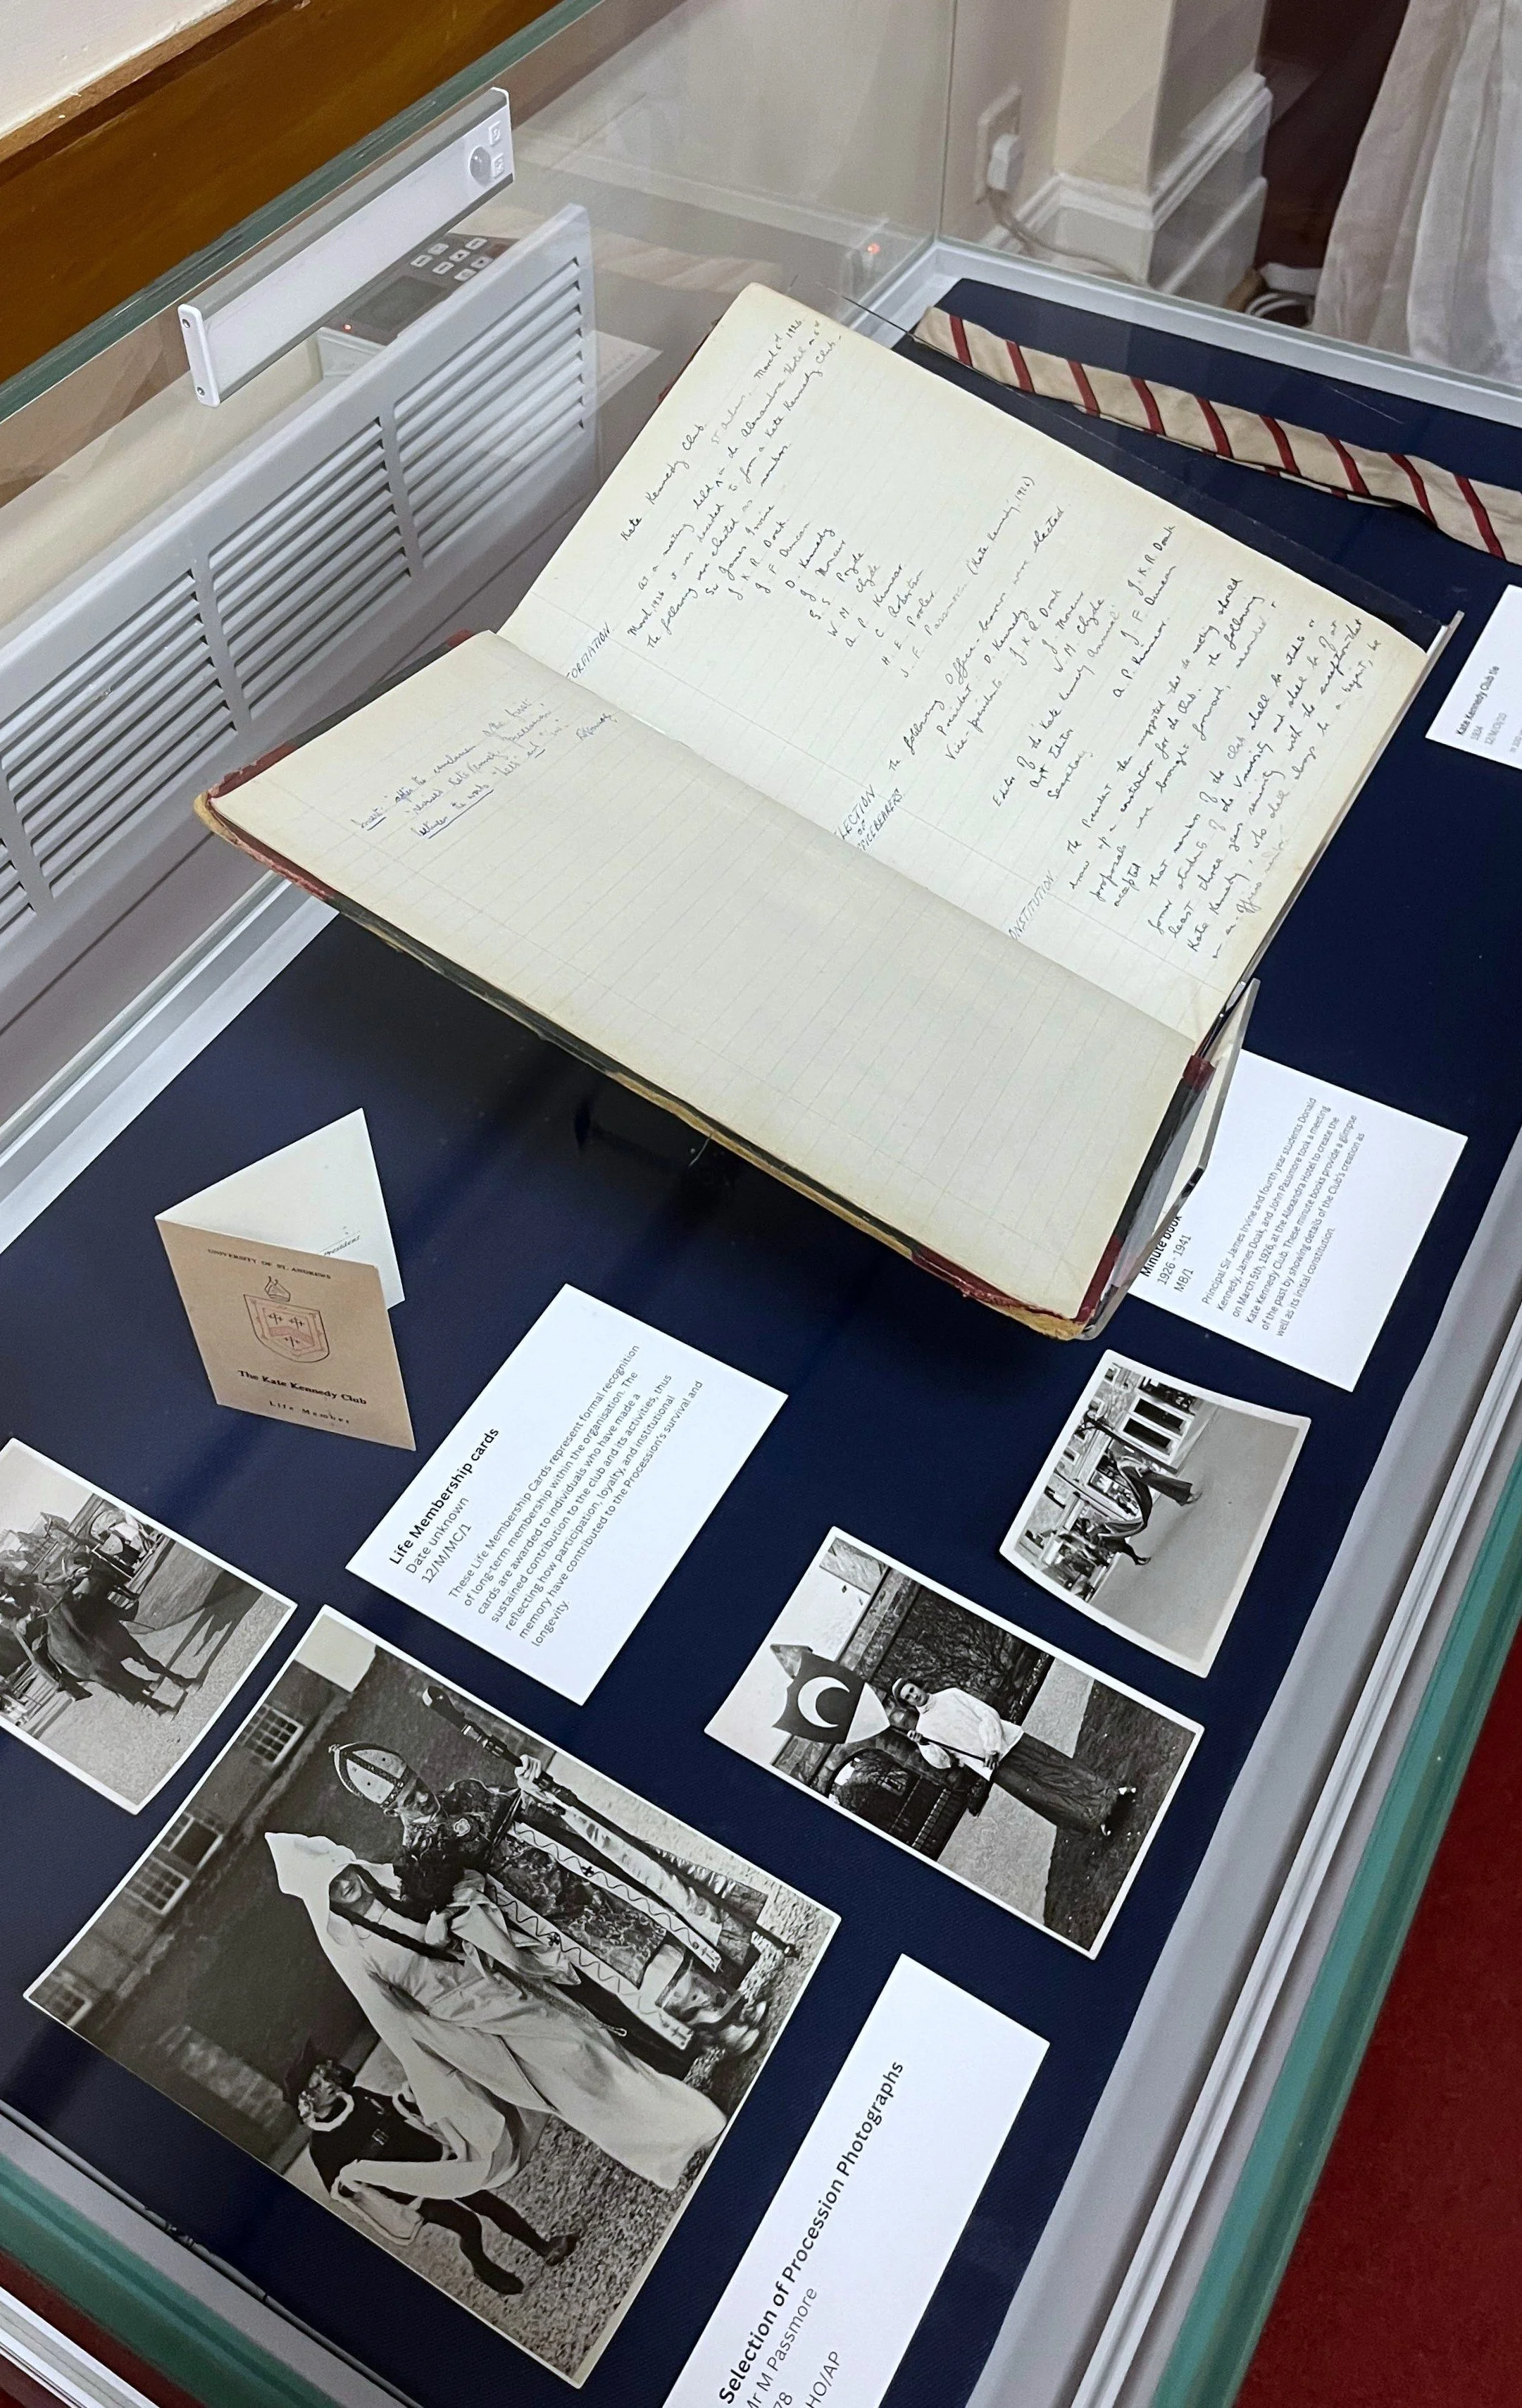 Kate Kennedy Club.
March 5th 1926.
At a meeting held in the Alexandra Hotel on 5th
March, 1926 it was decided to form a Kate Kennedy Club.
The following were elected as members.
Sir James Irvine
J. K. R. Doak
J. F. Duncan
D. Kennedy
J.
S. S.
W. M. Clyde
A. P. Kinnear
C.
H. E.
J. F. Passmore (Kate Kennedy, 1926)
FORMATION
The following Office-bearers were elected
President D. Kennedy
Vice-presidents J. K. R. Doak
J.
W. M. Clyde
Editor of the Kate Kennedy Annual
Asst Editor A. P. Kinnear.
Secretary J. F. Duncan
J. K. R. Doak
ELECTION
OF
OFFICEBEARERS
The President then suggested that the meeting should
draw up a constitution for the Club. The following
proposals were brought forward, seconded &
accepted
That members of the club shall be students or
former students of the University and shall be of at
least three years seniority with the exception that
Kate Kennedy, who shall always be a bejant, be
CONSTITUTION
Insert after the first
Kate Kennedy Procession,
Kate Kennedy Club tie
Minute book
1926 - 1941
MB/1
Principal Sir James Irvine and fourth year students Donald
Kennedy, James Doak, and John Passmore took a meeting
on March 5th, 1926, at the Alexandra Hotel to create the
Kate Kennedy Club. These minute books provide a glimpse
of the past by showing details of the Club's creation as
well as its initial constitution.
UNIVERSITY OF ST. ANDREWS
The Kate Kennedy Club
Life Member
President
Life Membership cards
Date unknown
12/M/MC/1
These Life Membership Cards represent formal recognition
of long-term membership within the organisation. The
cards are awarded to individuals who have made a
sustained contribution to the club and its activities, thus
reflecting how participation, loyalty, and institutional
memory have contributed to the Procession's survival and
longevity.
Selection of Procession Photographs
Mr M Passmore
78
HO/AP